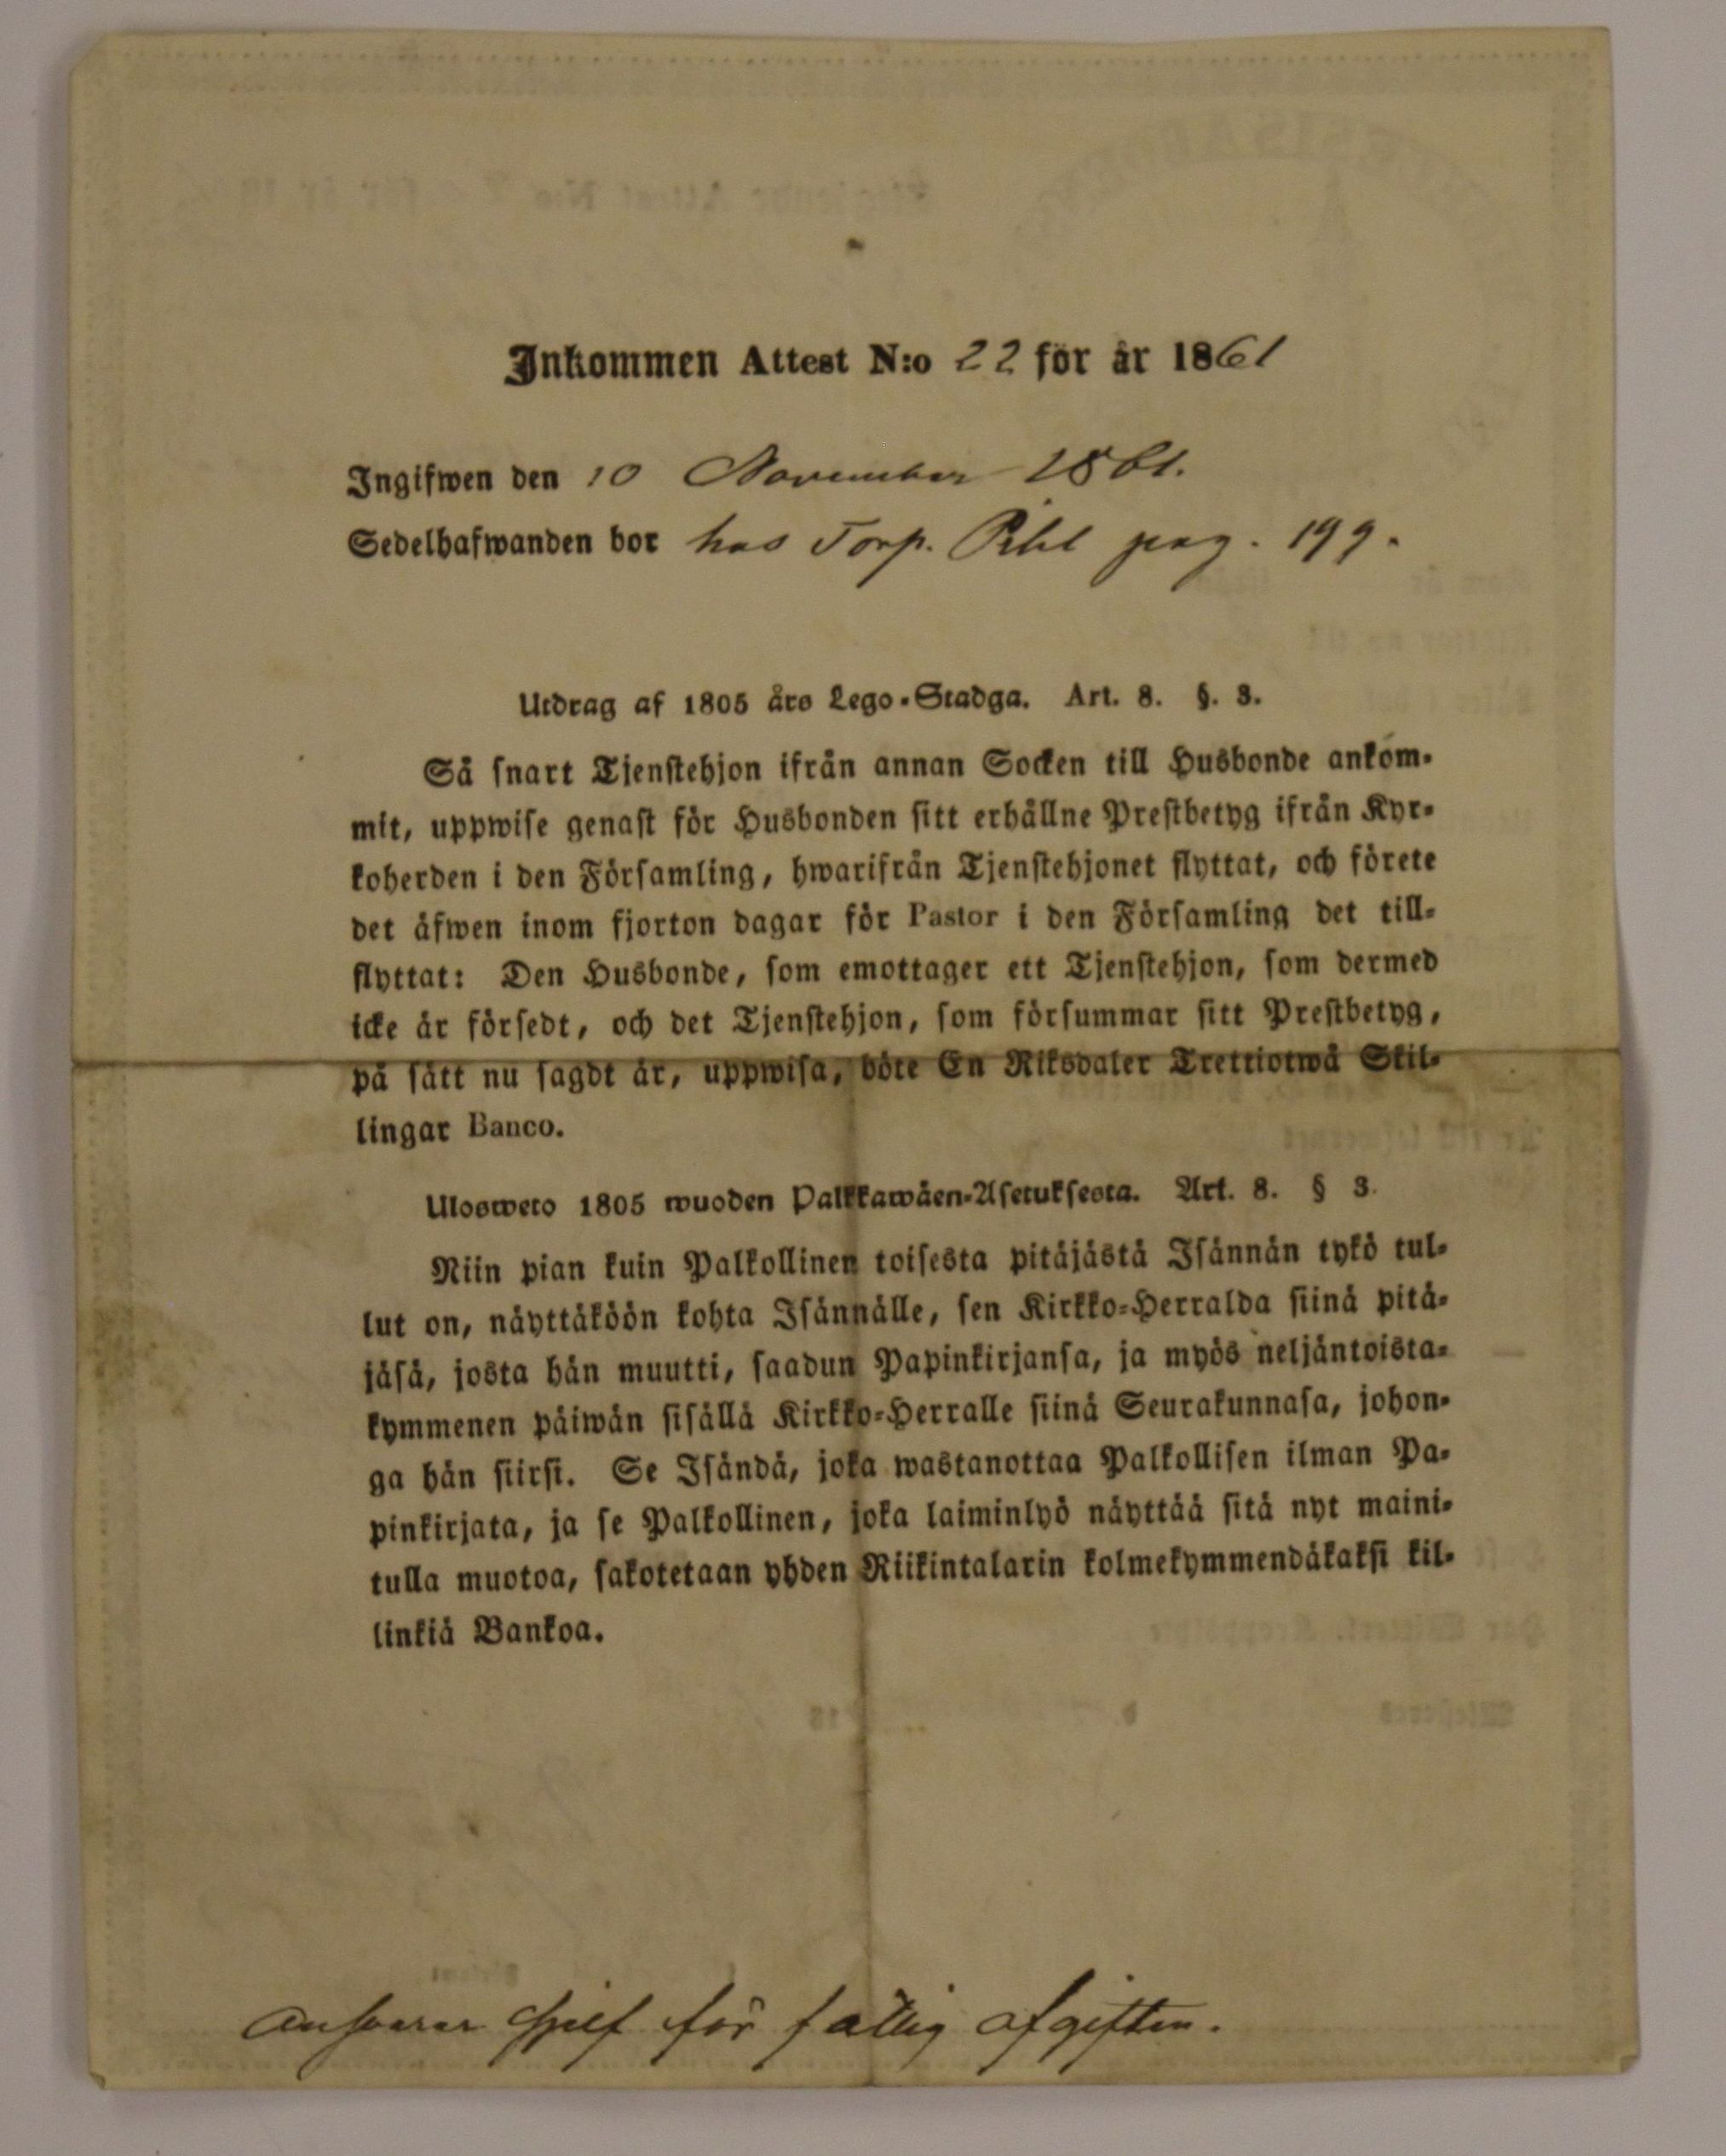 Inkommen Attest N:o 22 för år 1861
Ingifwen den 10 November 1861.
Sedelhafwanden bor hos Torp. Pihl pag. 199.
Utdrag af 1805 års Lego-Stadga. Art. 8. §. 3.
Så snart Tjenstehjon ifrån annan Socken till Husbonde ankom-
mit, uppwise genast för Husbonden sitt erhållne Prestbetyg ifrån Kyr-
koherden i den Församling, hwarifrån Tjenstehjonet flyttat, och förete
det äfwen inom fjorton dagar för Pastor i den Församling det till-
flyttat: Den Husbonde, som emottager ett Tjenstehjon, som dermed
icke är försedt, och det Tjenstehjon, som försummar sitt Prestbetyg,
på sätt nu sagdt är, uppwisa, böte En Riksdaler Trettiotwå Skil-
lingar Banco.
Ulosweto 1805 wuoden Palkkawäen-Asetuksesta. Art. 8. § 3.
Niin pian kuin Palkollinen toisesta pitäjästä Isännän tykö tul-
lut on, näyttäköön kohta Isännälle, sen Kirkko-Herralda siinä pitä-
jäsä, josta hän muutti, saadun Papinkirjansa, ja myös neljäntoista-
kymmenen päiwän sisällä Kirkko-Herralle siinä Seurakunnasa, johon-
ga hän siirsi. Se Isändä, joka wastanottaa Palkollisen ilman Pa-
pinkirjata, ja se Palkollinen, joka laiminlyö näyttää sitä nyt maini-
tulla muotoa, sakotetaan yhden Riikintalarin kolmekymmendäkaksi kil-
linkiä Bankoa.
ansvarar sjelf för fattig afgiften.